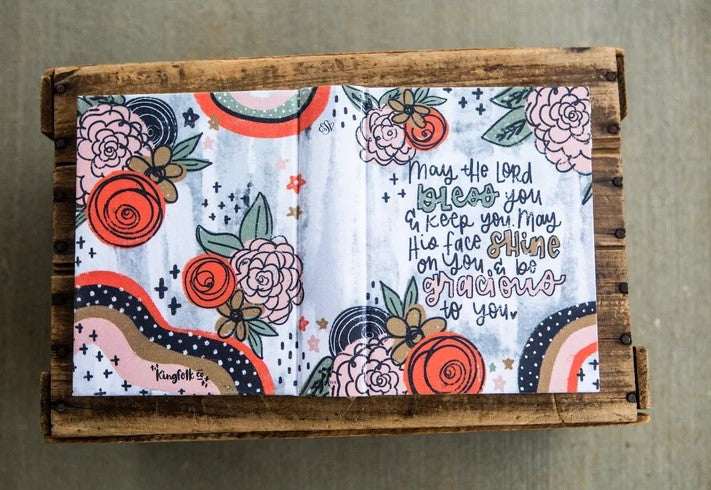 ESV
May the LORD
bless you
& keep you. May
His face shine
on you & be
gracious
to you.
Kingfolk co